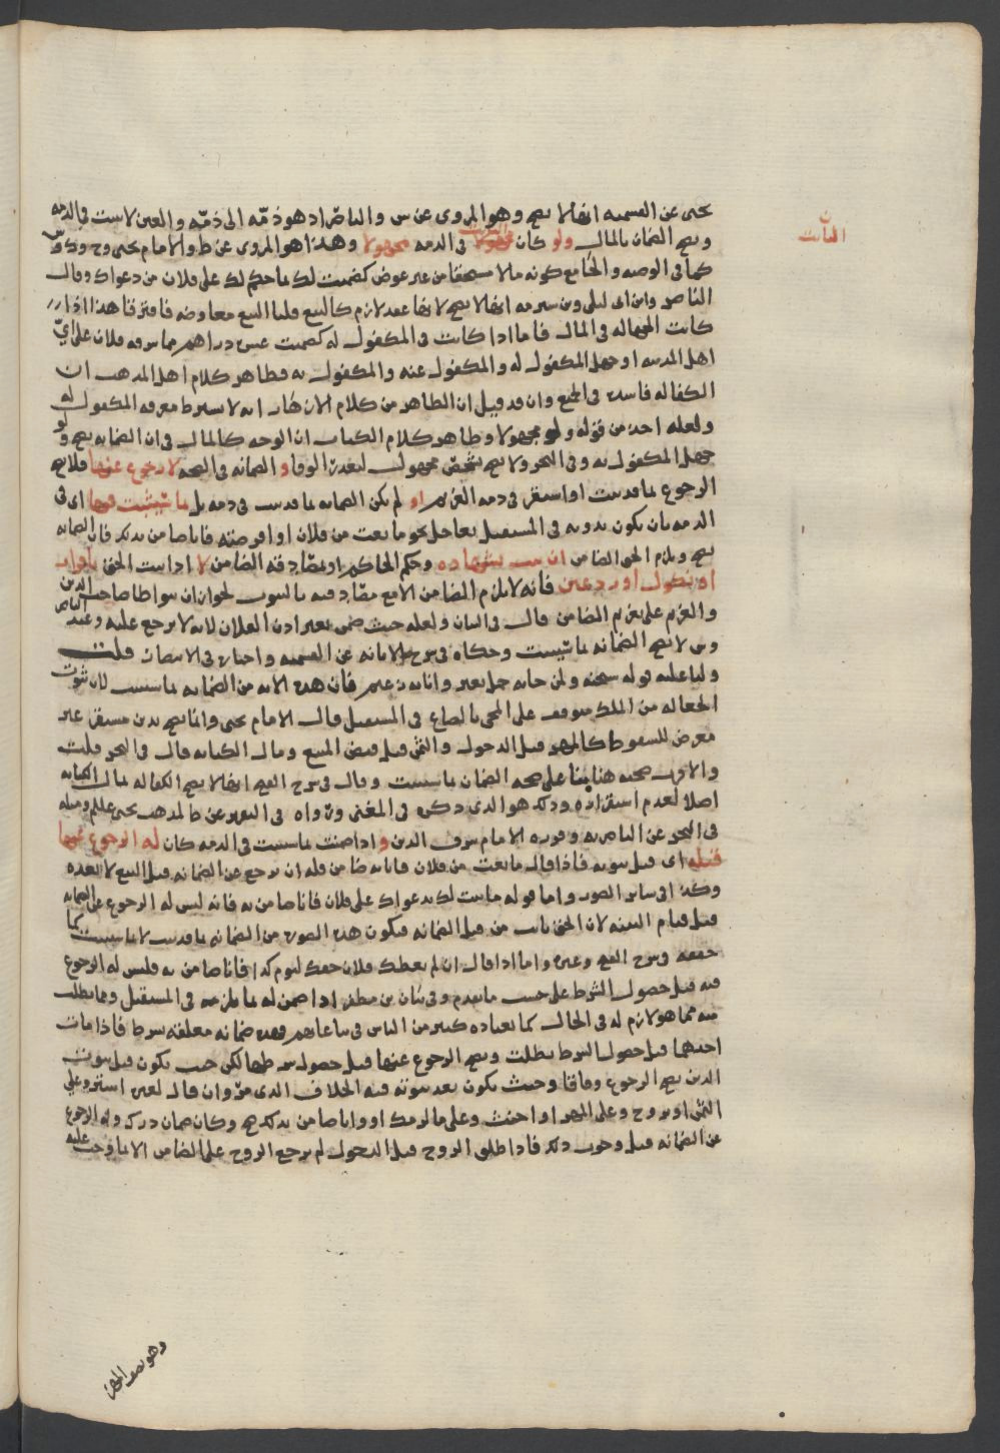 يحيى عن القسميه انها لا يصح وهو المروى عن س والناصر اذ هو ذمة الى ذمة والعين لا تثبت فى الذمه
ويصح الضمان بالمال ولو كان مجهولا فى الذمه مجهولا وهذا هو المروى عن ط والامام يحيى وح وك
كما فى الوصيه والجامع كونه مالا مستحقا من غير عوض كضمنت لك بما حكم لك على فلان من دعواك وقال
الثابت
الناصر وابن ابى ليلى وبن سيرمه انها لا يصح لانها عقد لازم كالبيع قلنا البيع معاوضه فافترقا هذا اذا
كانت الجهاله فى المال فاما اذا كانت فى المكفول له كضمنت عشره دراهم مما سرقه فلان على اى
اهل المدينه او جهل المكفول له والمكفول عنه والمكفول به فظاهر كلام اهل المذهب ان
الكفاله فاسده فى الجميع وان قد قيل ان الظاهر من كلام الازهار انه لا يشترط معرفه المكفول له
ولعله اخذ من قوله ولو مجهولا وظاهر كلام الكتاب ان الوجه كالمال فى ان الضمانه يصح ولو
جهل المكفول به وفى البحر ولا يصح بشخص مجهول لتعذر الوفا و الضمانه فى الصحه لا رجوع عنها فلا يصح
الرجوع بما قد ثبت او استقر فى ذمه الغريم او لم يكن الضمانه بما قد ثبت فى ذمه بل بما سيثبت فيها اى فى
الذمه بان يكون بدونه فى المستقبل بعاجل نحو ما بعت من فلان او اقرضته فانا ضامن بذلك فان الضمانه
يصح ويلزم الحق الضامن ان ثبت بشهاده وحكم الحاكم او مصادقه الضامن لا اذا ثبت الحق باقرار
او نكول او رد يمين فانه لا يلزم الضامن الا مع مصادقته بالثبوت لجواز ان يتواطا صاحب الدين
والغريم على تغريم الضامن قال فى البيان ولعله حيث ضمن بغير اذن الغلان لانه لا يرجع عليه وعند الناصر
وس لا يصح الضمانه بما سيثبت وحكاه فى شرح الابانه عن القسميه واختاره فى الانتصار قلت
ولنا عليه قوله سبحنه ولمن جاء به حمل بعير وانا به زعيم فان هذه الايه من الضمانه بما سيثبت لان ثبوت
الجعاله من الملك متوقف على المجى بالصاع فى المستقبل قال الامام يحيى وانما يصح بدين مستقر غير
معرض للسقوط كالمهر قبل الدخول والثمن قبل قبض المبيع ومال الكتابه قال فى البحر قلت
والاقرب صحته هنا بنا على صحه الضمان بما سيثبت وقال فى شرح الفتح انها لا يصح الكفاله بمال الكتابه
اصلا لعدم استقراره وذلك هو الذى ذكره فى المغنى ورواه فى التقرير عن ط لمذهب يحيى عليلم ومثله
فى البحر عن الناصريه وقرره الامام شرف الدين و اذا ضمنت بما سيثبت فى الذمه كان له الرجوع عنها
قبله اى قبل ثبوته فاذا قال ما بعت من فلان فانا به ضامن فله ان يرجع عن الضمانه قبل البيع لا بعده
وكذا فى ساير الصور واما قوله ما ثبت لك بدعواك على فلان فانا ضامن به فانه ليس له الرجوع عن الضمانه
قبل قيام البينه لان الحق ثابت من قبل الضمانه فيكون هذه الصوره من الضمانه بما قد ثبت لا بما سيثبت كما
حققه فى شرح الفتح وغيره واما اذا قال ان لم يعطك فلان حقك ليوم كذا فانا ضامن به فليس له الرجوع
فيه قبل حصول الشرط على حسب ما تقدم وفى بيان بن مظفر اذا ضمن له بما يلزمه فى المستقبل وبما يطلب
منه مما هو لازم له فى الحال كما يعتاده كثير من الناس فى بياعاتهم فهذه ضمانه معلقه بشرط فاذا مات
احدهما قبل حصول الشرط بطلت ويصح الرجوع عنها قبل حصول شرطها لكن حيث يكون قبل ثبوت
الدين يصح الرجوع وفاقا وحيث يكون بعد ثبوته فيه الخلاف الذى مر وان قال لغيره اشتر وعلي
الثمن او تزوج وعلى المهر او احنث وعلى ما لزمك او وانا ضامن بذلك صح وكان ضمان درك وله الرجوع
عن الضمانه قبل وجوب ذلك فاذا طلق الزوج قبل الدخول لم يرجع الزوج على الضامن الا بما وجب عليه
وهو نصف المهر